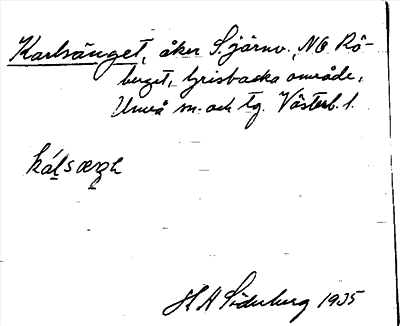 Karlsänget, åker S. järnv., NO Rö-
berget, Grisbacka område,
Umeå sn. och tg. Västerb. l.
kálsæŋ
H A Söderberg 1935